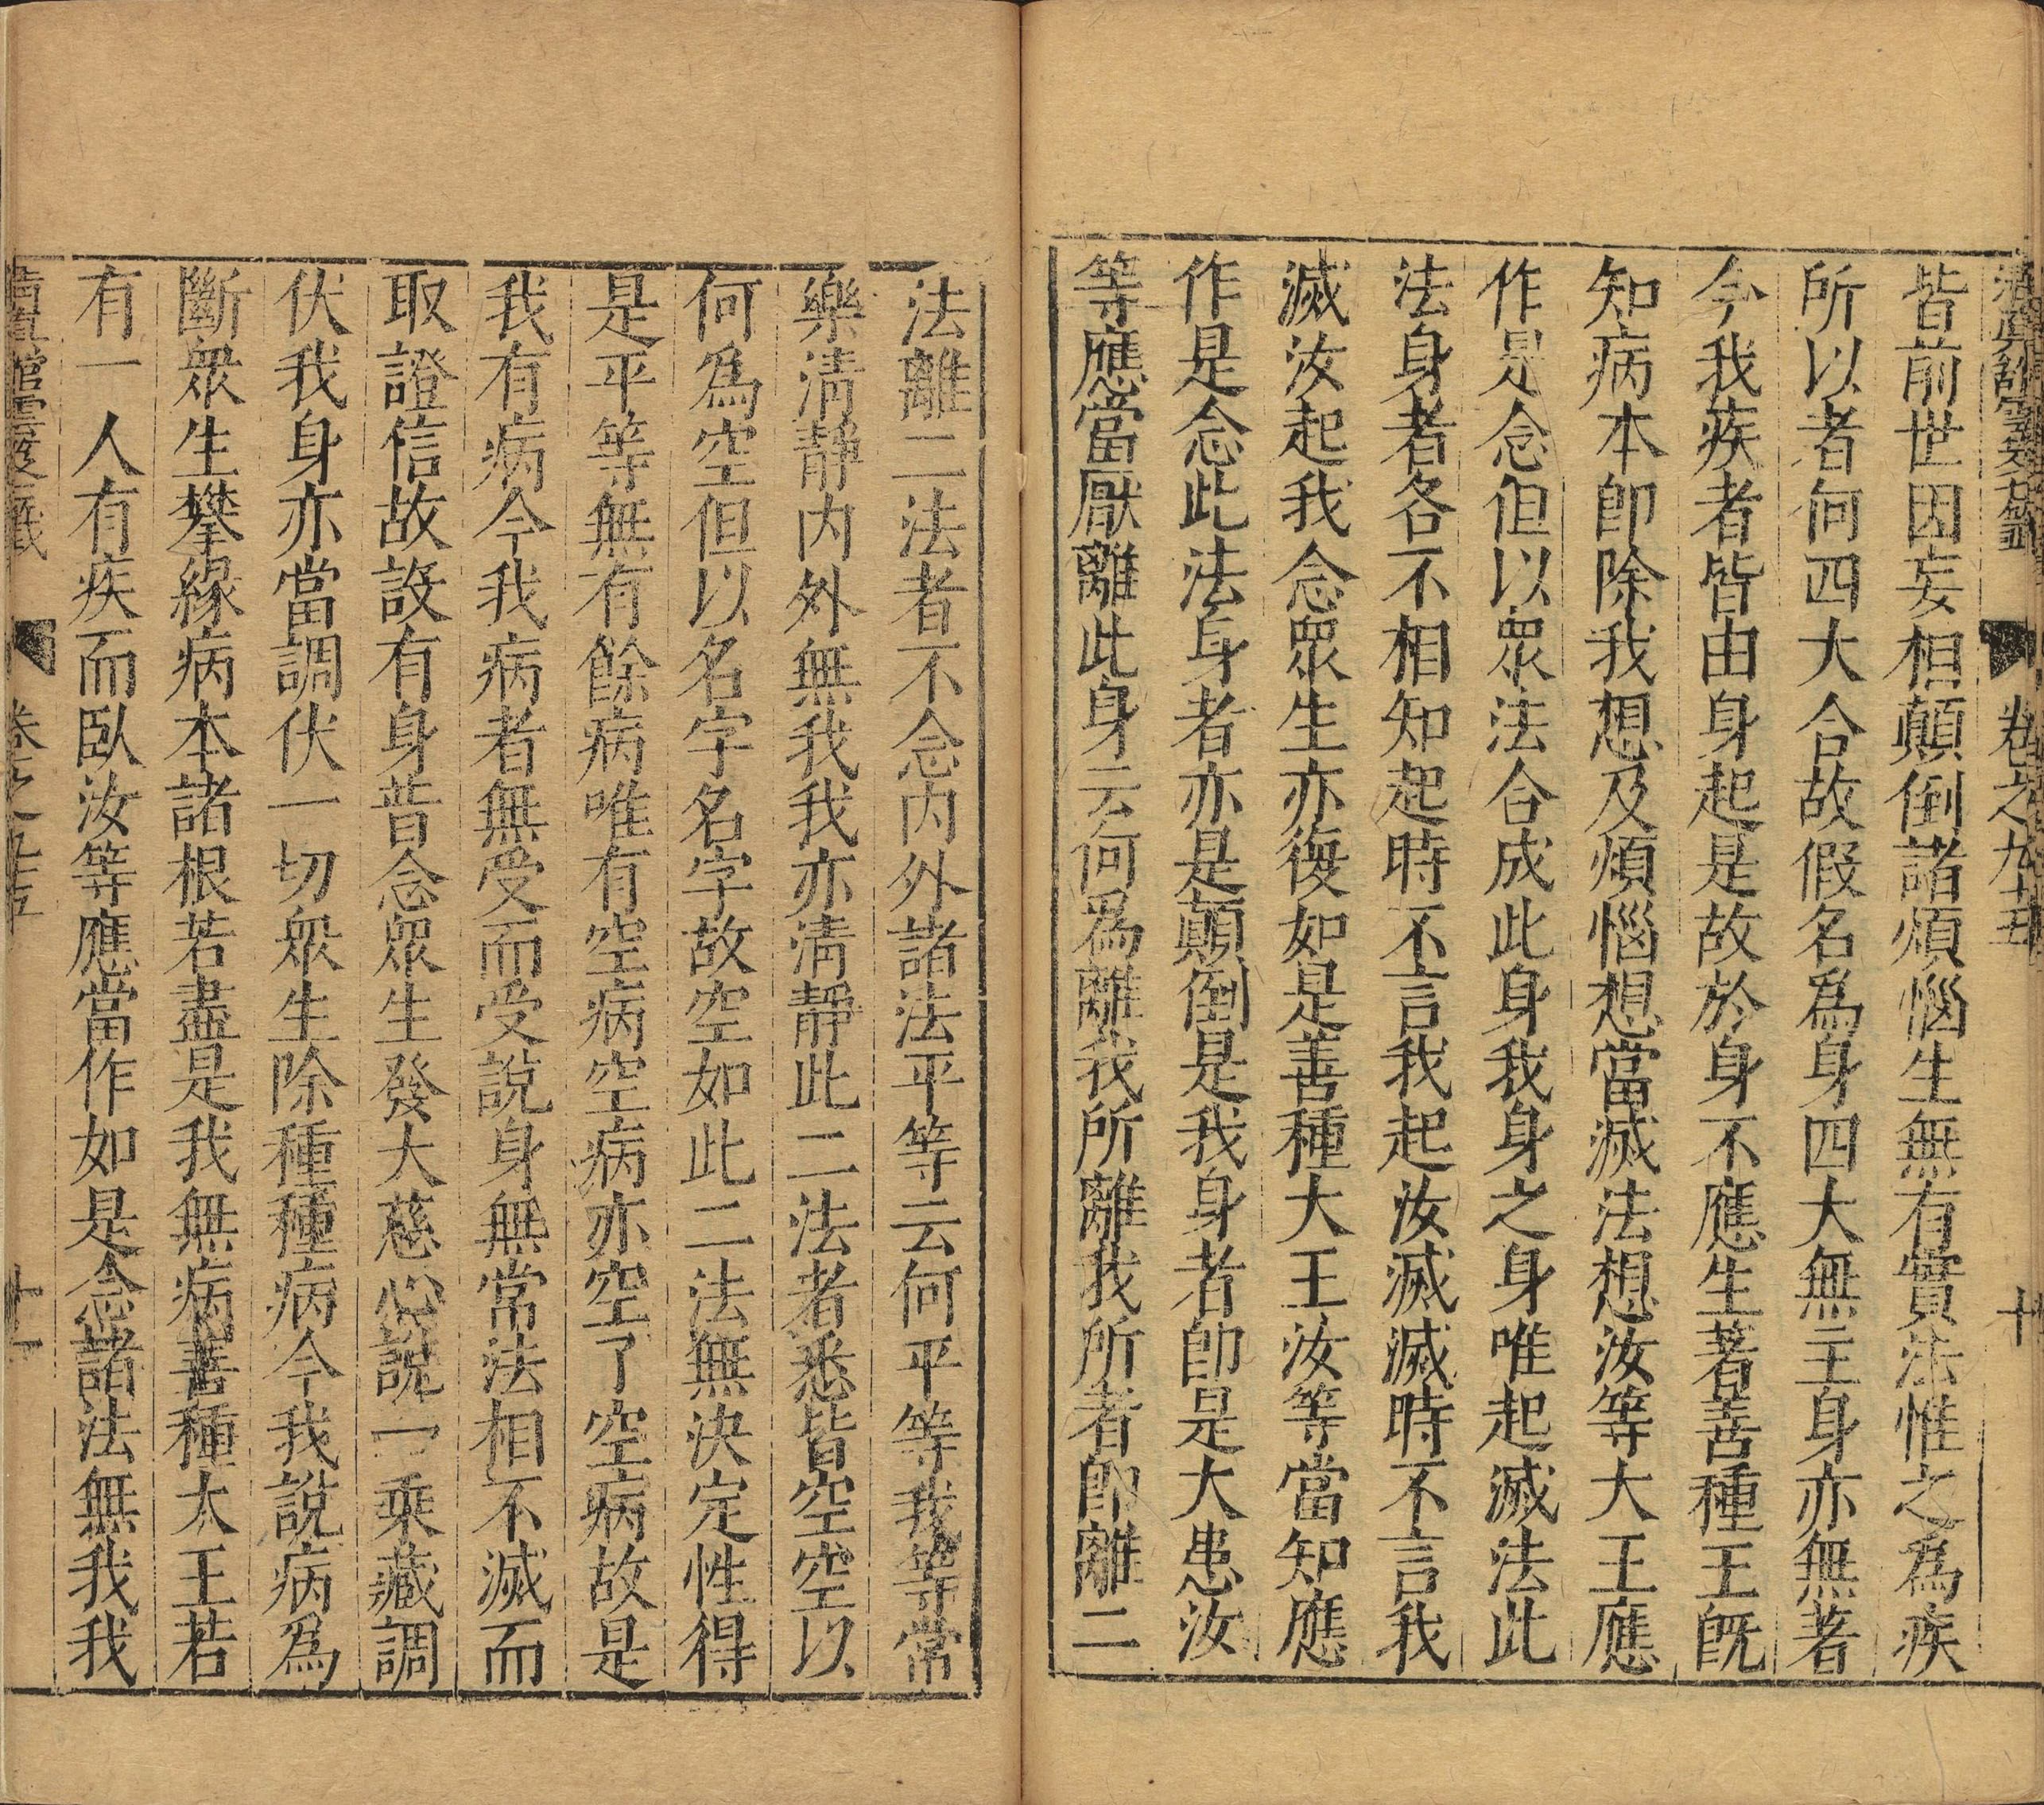 卷之九十五　十
皆前世因妄相顛倒諸煩惱生無有實法惟之為疾
所以者何四大合故假名爲身四大無主身亦無著
今我疾者皆由身起是故於身不應生著善種王旣
知病本卽除我想及煩惱想當滅法想汝等大王應
作是念但以眾法合成此身我身之身唯起滅法此
法身者各不相知起時不言我起汝滅滅時不言我
滅汝起我念眾生亦復如是善種大王汝等當知應
作是念此法身者亦是顛倒是我身者卽是大患汝
等應當厭離此身云何爲離我所離我所者卽離二
法離二法者不念内外諸法平等云何平等我等常
樂淸靜内外無我我亦淸靜此二法者悉皆空空以
何爲空但以名字名字故空如此二法無決定性得
是平等無有餘病唯有空病空病亦空了空病故是
我有病今我病者無受而受說身無常法相不滅而
取證信故設有身昔念眾生發大慈心說一乘藏調
伏我身亦當調伏一切眾生除種種病今我說病爲
斷眾生攀緣病本諸根若盡是我無病善種大王若
有一人有疾而臥汝等應當作如是念諸法無我我
卷之　十一